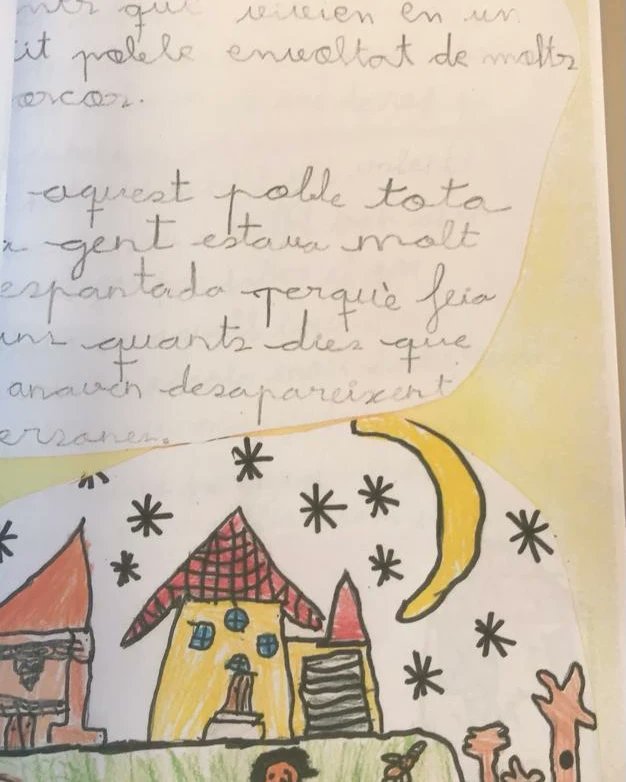 qui vivien en un
poble envoltat de molts
arcos.
aquest poble tota
a gent estava molt
espantada perquè feia
uns quants dies que
anaven desapareixent
ersones.